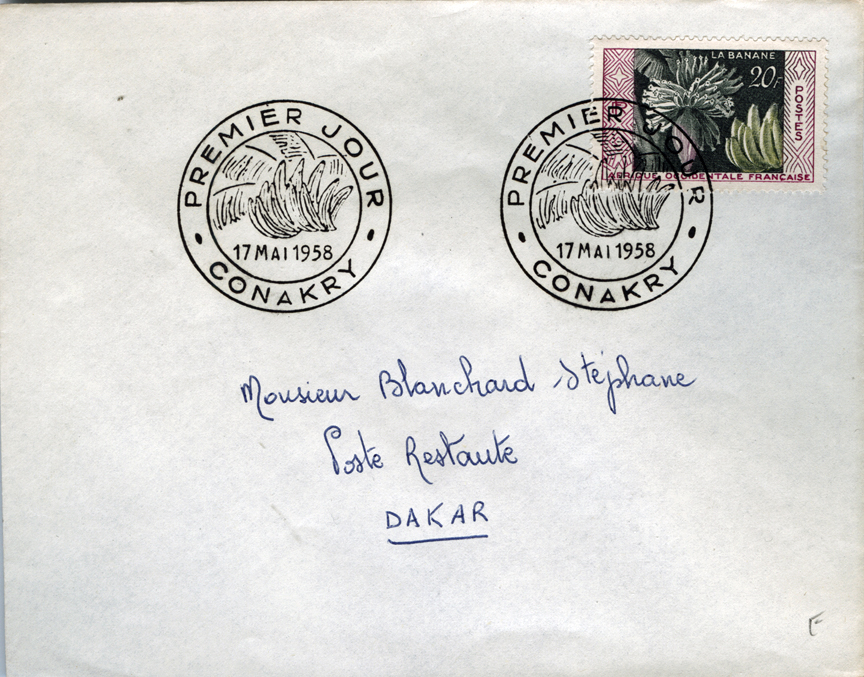 LA BANANE
20F
POSTES
AFRIQUE OCCIDENTALE FRANÇAISE
PREMIER JOUR
17 MAI 1958
CONAKRY
PREMIER JOUR
17 MAI 1958
CONAKRY
Monsieur Blanchard Stéphane
Poste Restante
DAKAR